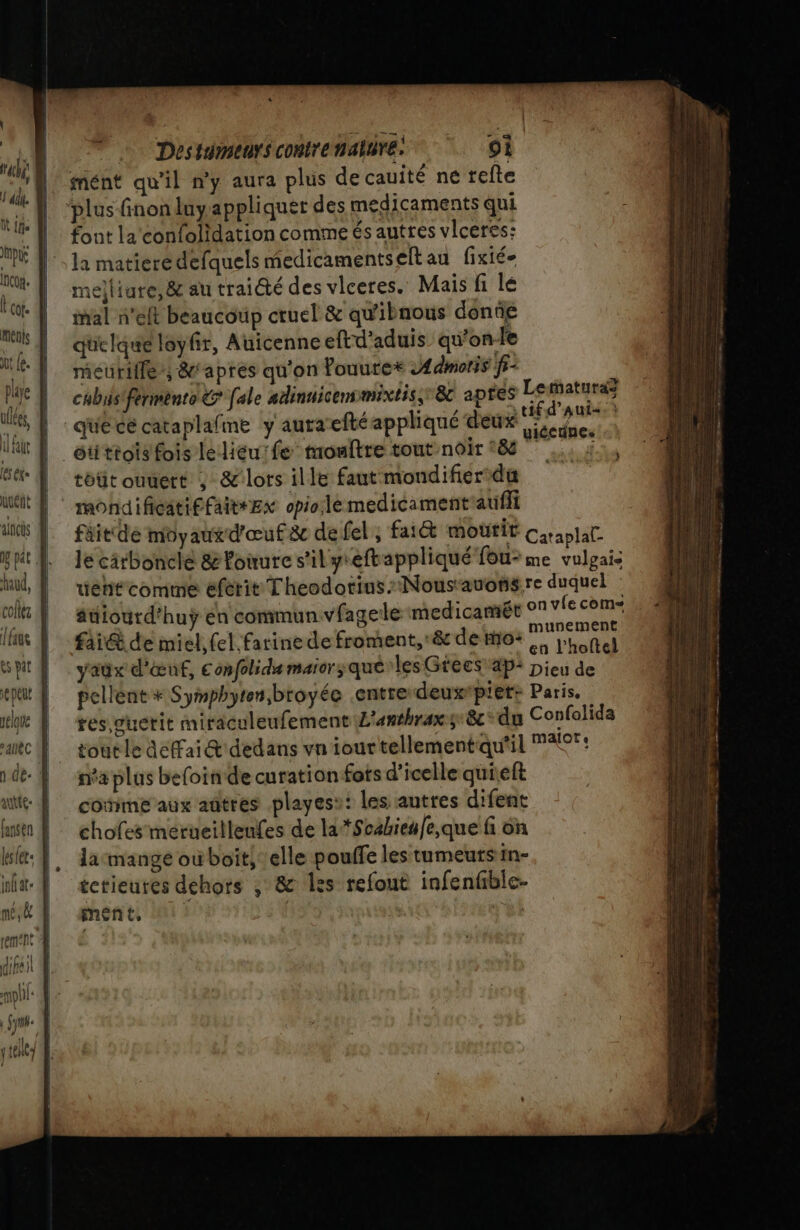 Des tumeurs contre nature. 91
ment qu'il n'y aura plus de cauité ne reste
plus sinon luy appliquer des medicaments qui
font la consolidation comme és autres vlceres:
la matiere desquels medicaments est au sixié-
me liure, & au traicté des vlceres. Mais si le
mal n'est beaucoup cruel & qu'il nous donne
quelque loysir, Auicenne est d'aduis qu'on le
meurisse, & apres qu'on l'ouure* Admotis fi-
cubus fermento & sale adinuicem mixtis, & apres
que ce cataplasme y aura esté appliqué deux
ou trois fois le lieu se monstre tout noir &
tout ouuert, & lors il le faut mondifier du
mondificatif fait* Ex opio, le medicament aussi
fait de moyaux d'œuf & de sel, faict mourir
le carboncle & l'ouure s'il y est appliqué sou-
uent comme escrit Theodorius. Nous auons
auiourd'huy en commun vsage le medicamēt
faict de miel, sel, farine de froment, & de mo-
yaux d'œuf, Consolida maior, que les Grecs ap-
pellent * Symphyton, broyée entre deux pier-
res, guerit miraculeusement L'anthrax, & du
tout le deffaict dedans vn iour tellement qu'il
n'a plus besoin de curation fors d'icelle qui est
comme aux autres playes: les autres disent
choses merueilleuses de la *Scabieuse, que si on
la mange ou boit, elle pousse les tumeurs in-
terieures dehors, & les resout insensible-
ment.
Le maturaz
tif d'Aui-
uicenne.
Cataplas-
me vulgai-
re duquel
on vse com-
munement
en l'hostel
Dieu de
Paris.
Consolida
maior.